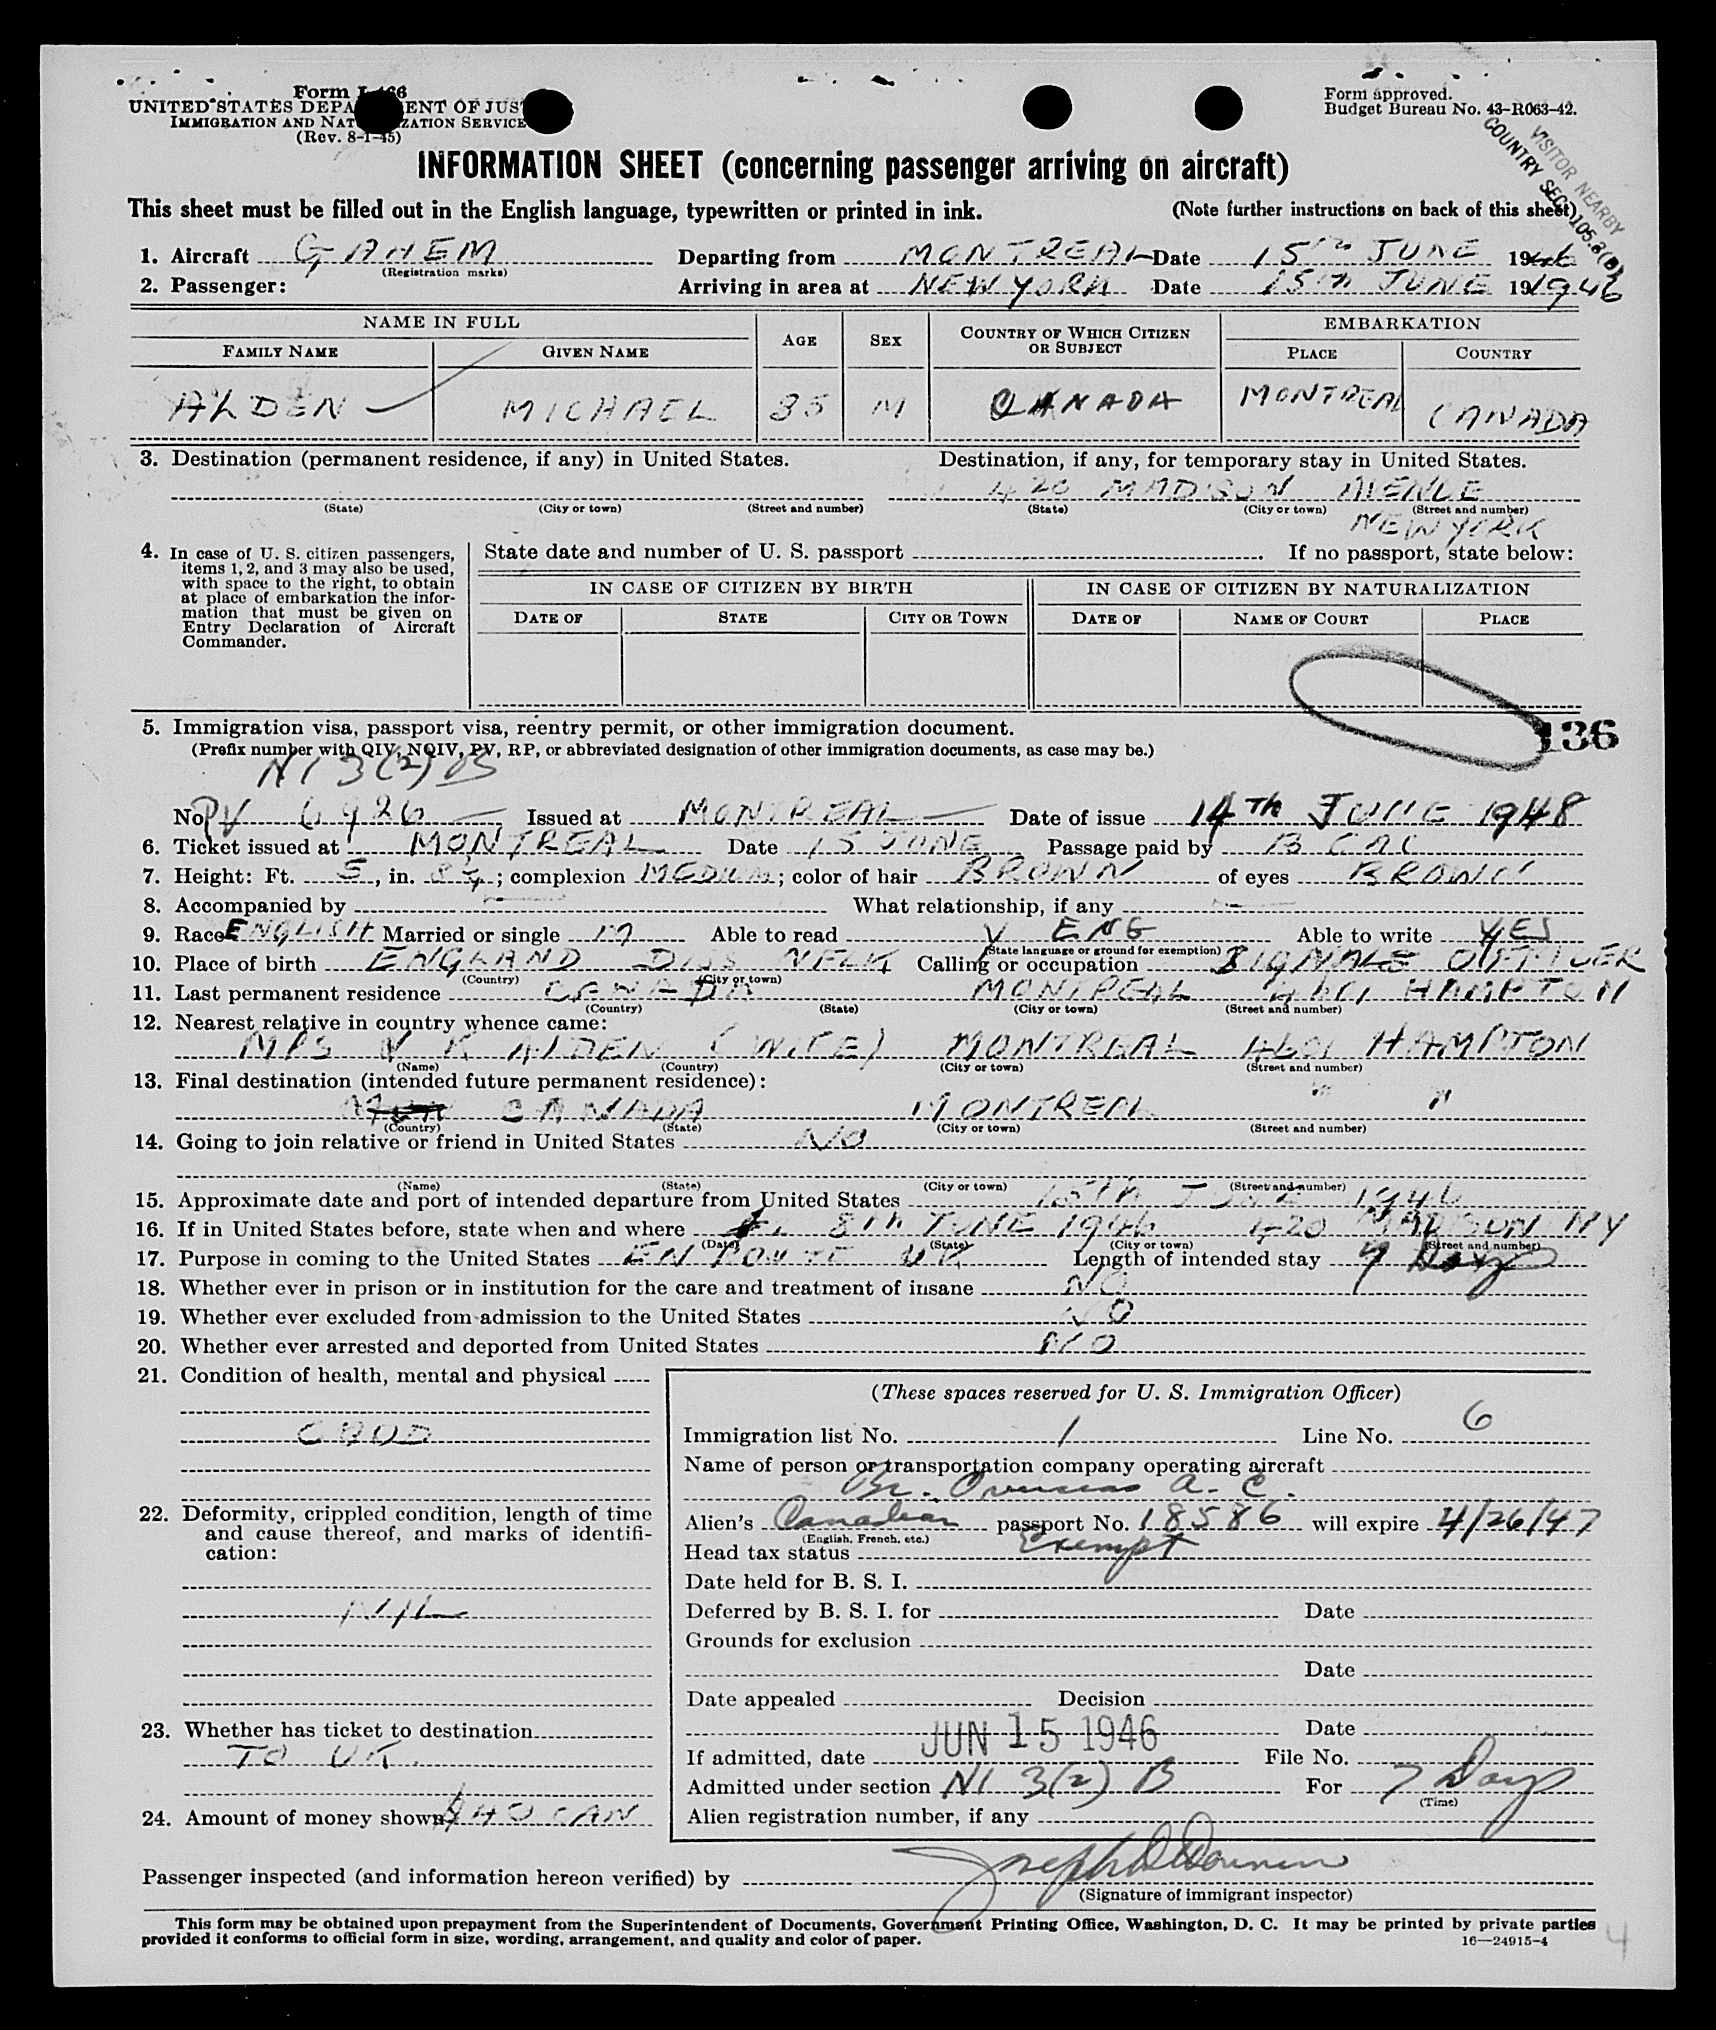 Form I-466
UNITED STATES DEPARTMENT OF JUSTICE
IMMIGRATION AND NATURALIZATION SERVICE
(Rev. 8-1-45)
Form approved.
Budget Bureau No. 43-R063-42.
VISITOR NEARBY
COUNTRY SEC. 105.3(B)
INFORMATION SHEET (concerning passenger arriving on aircraft)
This sheet must be filled out in the English language, typewritten or printed in ink. (Note further instructions on back of this sheet)
1. Aircraft GAHEM Departing from MONTREAL Date 15TH JUNE 1946
(Registration marks)
2. Passenger: Arriving in area at NEW YORK Date 15TH JUNE 19 1946
NAME IN FULL AGE SEX COUNTRY OF WHICH CITIZEN OR SUBJECT EMBARKATION
FAMILY NAME GIVEN NAME PLACE COUNTRY
ALDEN MICHAEL 35 M CANADA MONTREAL CANADA
3. Destination (permanent residence, if any) in United States. Destination, if any, for temporary stay in United States.
420 MADISON AVENUE
(State) (City or town) (Street and number) (State) (City or town) (Street and number)
NEW YORK
4. In case of U. S. citizen passengers, items 1, 2, and 3 may also be used, with space to the right, to obtain at place of embarkation the information that must be given on Entry Declaration of Aircraft Commander.
State date and number of U. S. passport . If no passport, state below:
IN CASE OF CITIZEN BY BIRTH IN CASE OF CITIZEN BY NATURALIZATION
DATE OF STATE CITY OR TOWN DATE OF NAME OF COURT PLACE
136
5. Immigration visa, passport visa, reentry permit, or other immigration document.
(Prefix number with QIV, NQIV, PV, RP, or abbreviated designation of other immigration documents, as case may be.)
NI 3(2) B
No. PV 6926 Issued at MONTREAL Date of issue 14TH JUNE 1948
6. Ticket issued at MONTREAL Date 15 JUNE Passage paid by
7. Height: Ft. 5, in. 8 ; complexion MEDIUM; color of hair BROWN of eyes BROWN
8. Accompanied by What relationship, if any
9. Race ENGLISH Married or single M Able to read Y ENG Able to write YES
(State language or ground for exemption)
10. Place of birth ENGLAND DISS NFLK Calling or occupation SIGNALS OFFICER
(Country) (City or town)
11. Last permanent residence CANADA MONTREAL 4601 HAMPTON
(Country) (State) (City or town) (Street and number)
12. Nearest relative in country whence came:
MRS V K ALDEN (WIFE) MONTREAL 4601 HAMPTON
(Name) (Country) (City or town) (Street and number)
13. Final destination (intended future permanent residence):
CANADA MONTREAL " "
(Country) (State) (City or town) (Street and number)
14. Going to join relative or friend in United States NO
(Name) (State) (City or town) (Street and number)
15. Approximate date and port of intended departure from United States 15TH JUNE 1946
16. If in United States before, state when and where 8TH JUNE 1946 420 MADISON NY
(Date) (State) (City or town) (Street and number)
17. Purpose in coming to the United States EN ROUTE UK Length of intended stay 7 Days
18. Whether ever in prison or in institution for the care and treatment of insane NO
19. Whether ever excluded from admission to the United States NO
20. Whether ever arrested and deported from United States NO
21. Condition of health, mental and physical
GOOD
22. Deformity, crippled condition, length of time and cause thereof, and marks of identification:
NIL
23. Whether has ticket to destination
TO UK.
24. Amount of money shown $40 CAN
(These spaces reserved for U. S. Immigration Officer)
Immigration list No. 1 Line No. 6
Name of person or transportation company operating aircraft
Br. Overseas A. C.
Alien's Canadian passport No. 18586 will expire 4/26/47
(English, French, etc.)
Head tax status Exempt
Date held for B. S. I.
Deferred by B. S. I. for Date
Grounds for exclusion
Date
Date appealed Decision
Date
If admitted, date JUN 15 1946 File No.
Admitted under section NI 3(2) B For 7 Days
(Time)
Alien registration number, if any
Passenger inspected (and information hereon verified) by
(Signature of immigrant inspector)
This form may be obtained upon prepayment from the Superintendent of Documents, Government Printing Office, Washington, D. C. It may be printed by private parties
provided it conforms to official form in size, wording, arrangement, and quality and color of paper. 16—24915-4
4